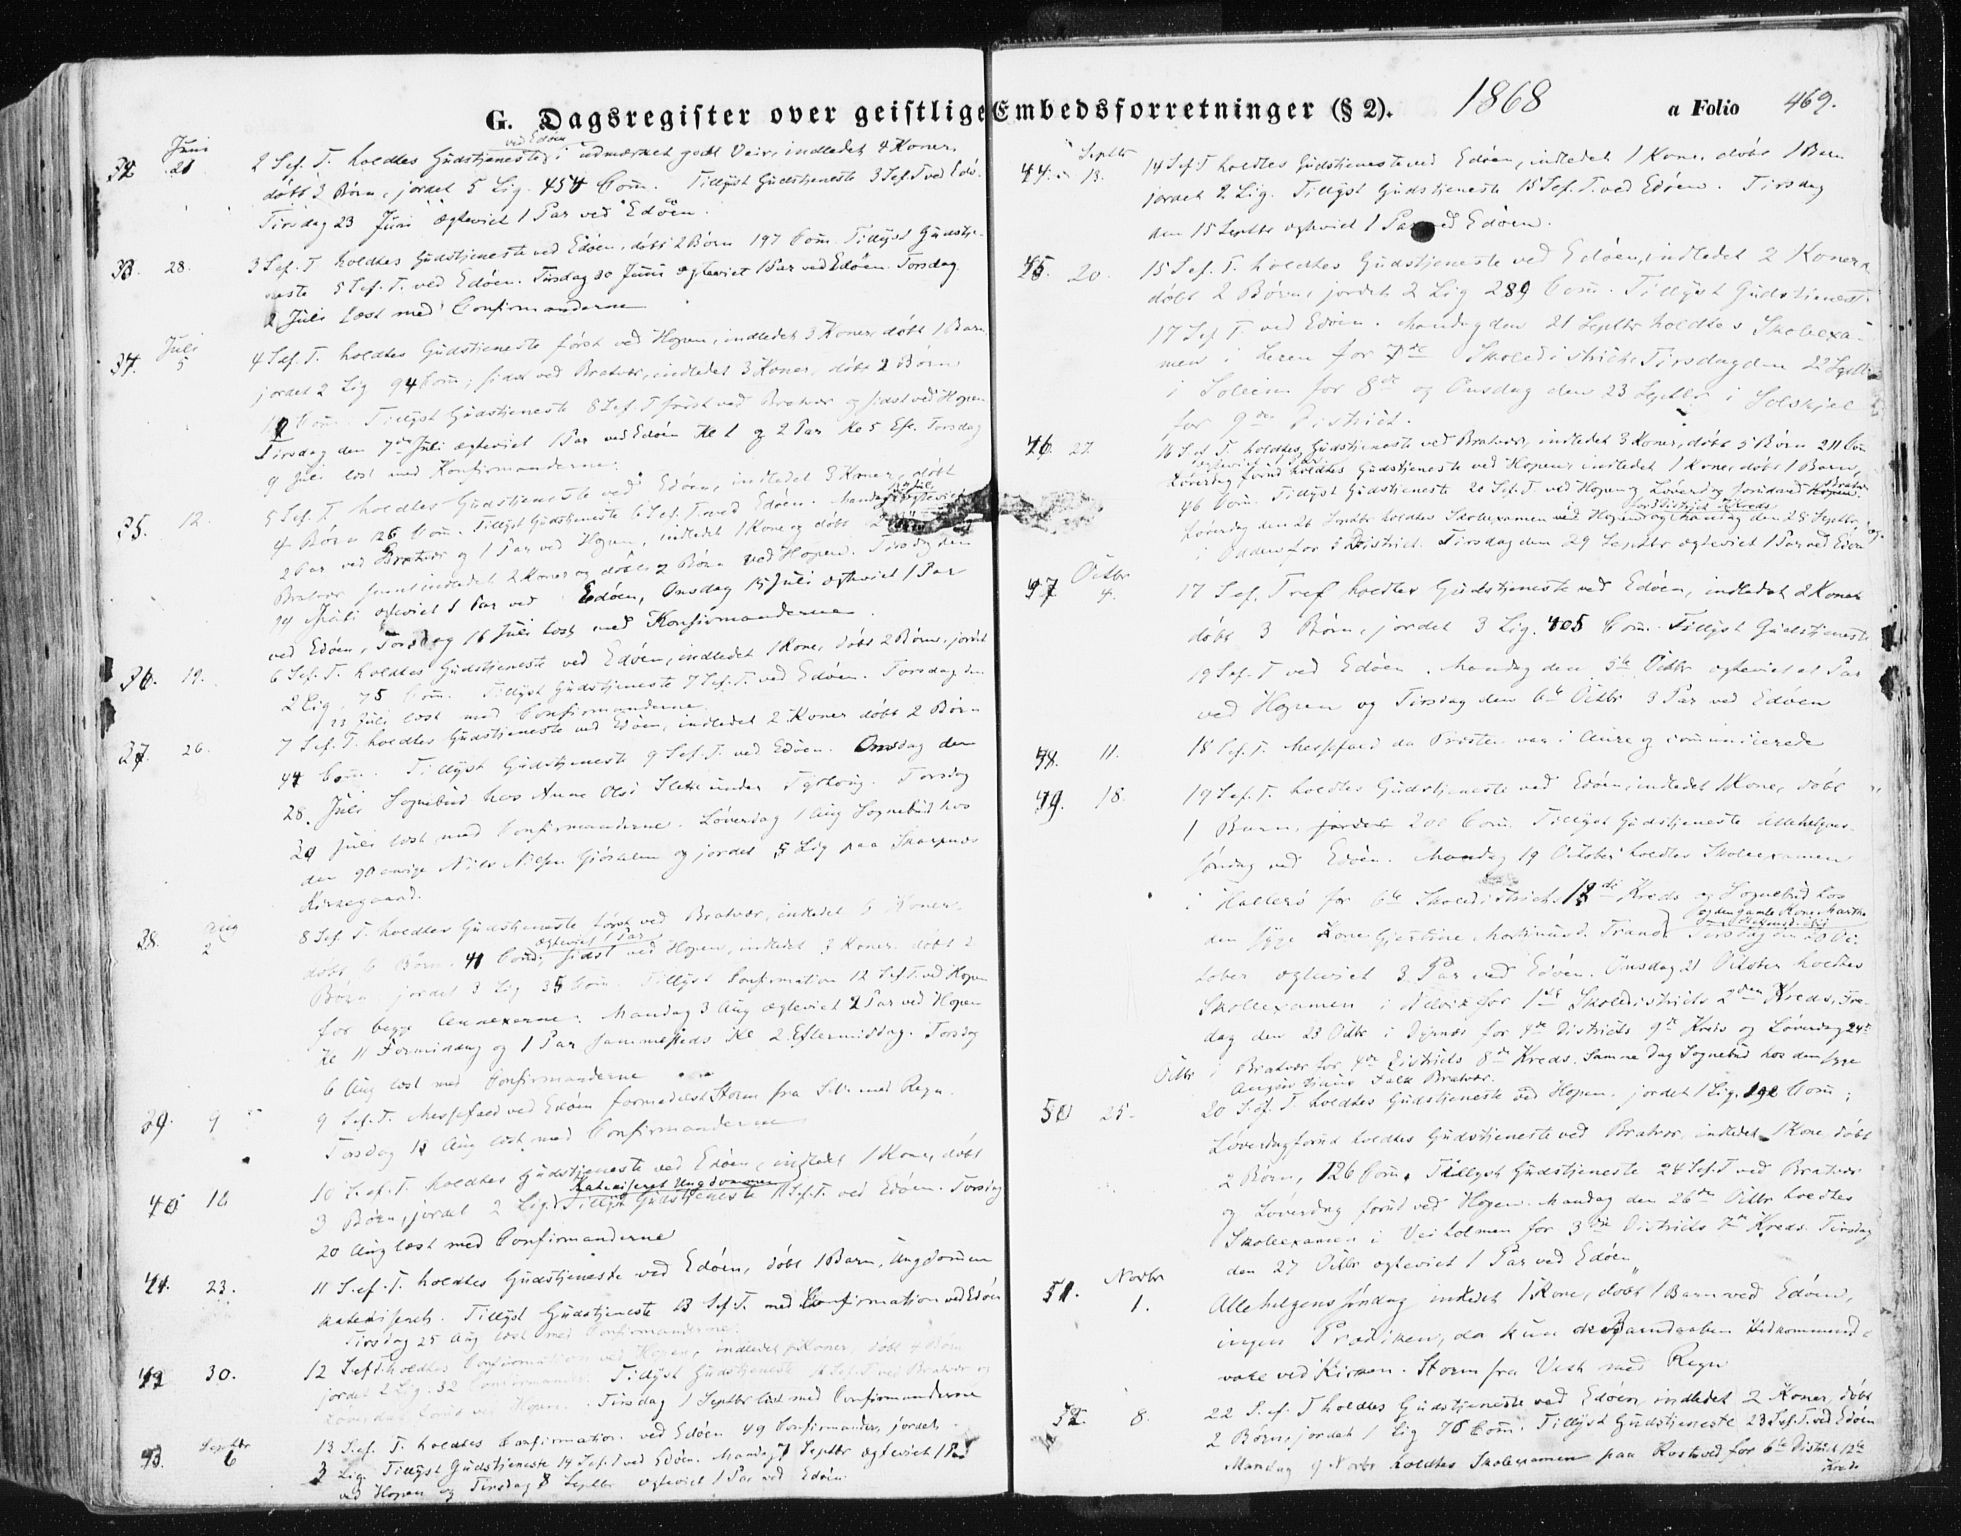 G. Dagsregister over geistlige Embedsforretninger (§ 2). 1868 a Folio 469.
Juni
32 21 2 S.ef.T. holdtes Gudstjeneste ved Edöen i udmærket godt Veir, indledet 4 Koner,
döbt 3 Börn, jordet 5 Lig. 454 Com. Tillyst Gudstjeneste 3 S.ef.T. ved Edö.
Tirsdag 23 Juni ægteviet 1 Par ved Edöen.
33. 28. 3 S.ef.T. holdtes Gudstjeneste ved Edöen, döbt 2 Börn 197 Com. Tillyst Gudstje-
neste 5 S.ef.T. ved Edöen. Tirsdag 30 Juni ægteviet 1 Par ved Edöen. Torsdag
2 Juli læst med Confirmanderne
Juli
34. 5 4 S.ef.T. holdtes Gudstjeneste först ved Hopen, indledet 3 Koner, döbt 1 Barn,
jordet 2 Lig 94 Com, sidst ved Bratvær, indledet 3 Koner, döbt 2 Börn
Com. Tillyst Gudstjeneste 8 S.ef.T. först ved Bratvær og sidst ved Hopen
Tirsdag den 7de Juli ægteviet 1 Par ved Edöen Kl 1 og 2 Par Kl 5 Eft. Torsdag
9 Juli læst med Konfirmanderne.
35. 12. 5 S.ef.T. holdtes Gudstjeneste ved Edöen, indledet 3 Koner, döbt
4 Börn 126 Com. Tillyst Gudstjeneste 6 S.ef.T. ved Edöen. Mandag ægteviet
2 Par ved Bratvær og 1 Par ved Hopen, indledet 1 Kone og döbt 2
Bratvær samt indledet 2 Koner og döbt 2 Börn ved Hopen. Tirsdag den
14 Juli ægteviet 1 Par ved Edöen, Onsdag 15 Juli ægteviet 1 Par
ved Edöen, Torsdag 16 Juli læst med Konfirmanderne.
36. 19. 6 S.ef.T. holdtes Gudstjeneste ved Edöen, indledet 1 Kone, döbt 2 Börn, jordet
2 Lig, 75 Com. Tillyst Gudstjeneste 7 S.ef.T. ved Edöen. Torsdag den
23 Juli læst med Confirmanderne.
37. 26. 7 S.ef.T. holdtes Gudstjeneste ved Edöen, indledet 2 Koner döbt 2 Börn
44 Com. Tillyst Gudstjeneste 9 S.ef.T. ved Edöen. Onsdag den
28. Juli Sognebud hos Anne Olsd. under. Torsdag
30 Juli læst med Confirmanderne. Löverdag 1 Aug Sognebud hos
den 90 aarige Nils Nilsen og jordet 5 Lig paa
Kirkegaard.
Aug
38. 2 8 S.ef.T. holdtes Gudstjeneste först ved Bratvær, indledet 6 Koner
döbt 6 Börn, 41 Com, ægteviet 1 Par sidst ved Hopen, indledet 3 Koner. döbt 2
Börn, jordet 3 Lig 35 Com. Tillyst Confirmation 12 S.ef.T. ved Hopen
for begge Annexerne. Mandag 3 Aug ægteviet 2 Par ved Hopen
Kl 11 Formiddag og 1 Par sammesteds Kl 2 Eftermiddag. Torsdag
6 Aug læst med Confirmanderne
39. 9 9 S.ef.T. Messefald ved Edöen formedelst Storm fra S.V. med Regn.
Torsdag 13 Aug læst med Confirmanderne
40 16 10 S.ef.T. holdtes Gudstjeneste ved Edöen, indledt 1 Kone, döbt
3 Börn, jordet 2 Lig. Katekiseret Ungdommen Tillyst Gudstjeneste 11 S.ef.T. ved Edöen. Torsdag
20 Aug læst med Confirmanderne
41. 23. 11 S.ef.T. holdtes Gudstjeneste ved Edöen, döbt 1 Barn, Ungdommen
katekiseret. Tillyst Gudstjeneste 13 S.ef.T. med Confirmation ved Edöen
Tirsdag 25 Aug læst med Confirmanderne.
42 30. 12 S.ef.T. holdtes Confirmation ved Hopen, indledet Koner, döbt 4 Börn
jordet 2 Lig. 32 Confirmander. Tillyst Gudstjeneste 16 S.ef.T. ved Bratvær og
Löverdag forud ved Hopen. Tirsdag 1 Septbr læst med Confirmanderne
Septbr
43. 6 13 S.ef.T. holdtes Confirmation ved Edöen 49 Confirmander, jordet
3 Lig. Tillyst Gudstjeneste 14 S.ef.T. ved Edöen. Mandag 7 Septbr ægteviet 1 Par
ved Hopen og Tirsdag 8 Septbr ægteviet 1 Par ved Edöen
Septbr
44. 13. 14 S.ef.T holdtes Gudstjeneste ved Edöen, indledet 1 Kone, döbt 1 Barn
jordet 2 Lig. Tillyst Gudstjeneste 15 S.ef.T. ved Edöen. Tirsdag
den 15 Septbr ægteviet 1 Par ved Edöen.
45. 20. 15 S.ef.T. holdtes Gudstjeneste ved Edöen, indledet 2 Koner
döbt 2 Börn, jordet 2 Lig 289 Com. Tillyst Gudstjeneste
17 S.ef.T. ved Edöen. Mandag den 21 Septbr holdtes Skoleexa-
men i Leren for 7de Skoledistrict, Tirsdag den 22 Septbr
i Soleim for 8de og Onsdag den 23 Septbr i Solskjel
for 9de District.
46. 27. 16 S.ef.T. holdtes Gudstjeneste ved Bratvær, indledet 3 Koner, döbt 5 Börn 211 Com
Löverdag forud holdtes Gudstjeneste ved Hopen, indledet 1 Kone, döbt 1 Barn,
46 Com. Tillyst Gudstjeneste 20 S.ef.T. ved Hopen og Löverdag forud ved Bratvær
Löverdag den 26 Septbr holdtes Skoleexamen ved Hopen og Mandag den 28 Septbr
i Odden for 5 District. Tirsdag den 29 Septbr ægteviet 1 Par ved Edöen
Octbr
47 4. 17 S.ef.T ref holdtes Gudstjeneste ved Edöen, indledet 2 Koner
döbt 3 Börn, jordet 3 Lig. 405 Com. Tillyst Gudstjeneste
19 S.ef.T ved Edöen. Mandag den 5te Octbr ægteviet et Par
ved Hopen og Tirsdag den 6te Octbr 3 Par ved Edöen
48. 11. 18 S.ef.T. Messefald da Præsten var i Aure og communicerede
49. 18. 19 S.ef.T. holdtes Gudstjeneste ved Edöen, indledet 1 Kone, döbt
1 Barn, jordet 200 Com. Tillyst Gudstjeneste Allehelgens-
söndag ved Edöen. Mandag 19 October holdtes Skoleexamen
i Hallerö for 6te Skoledistricts 12de Kreds og Sognebud hos
den syge Kone Gjertine og den gamle Kone Marthe Tirsdag den 20 Oc-
tober ægteviet 3 Par ved Edöen. Onsdag 21 October holdtes
Skoleexamen i for 1ste Skoledistricts 2den Kreds, Fre-
dag den 23 Octbr i for 4de Districts 9de Kreds og Löverdag 24de
Octbr i Bratvær for 4de Districts 8de Kreds. Samme Dag Sognebud hos den syge
Hans Falk Bratvær.
50 25. 20 S.ef.T. holdtes Gudstjeneste ved Hopen, jordet 1 Lig. Com;
Löverdag forud holdtes Gudstjeneste ved Bratvær, indledet 1 Kone, döbt
2 Börn, 126 Com. Tillyst Gudstjeneste 24 S.ef.T ved Bratvær
og Löverdag forud ved Hopen. Mandag den 26de Octbr holdtes
Skoleexamen i Veiholmen for 3die Districts 7de Kreds. Tirsdag
den 27 Octbr ægteviet 1 Par ved Edöen
Novbr
51. 1. Allehelgenssöndag indledt 1 Kone, döbt 1 Barn ved Edöen,
ingen Prædiken, da kun de Barndaaben Vedkommende
vare ved Kirken. Storm fra Vest med Regn
52. 8. 22 S.ef.T holdtes Gudstjeneste ved Edöen, indledet 2 Koner, döbt
2 Börn, jordet 1 Lig 76 Com. Tillyst Gudstjeneste 23 S.ef.T. ved Edöen
Mandag 9 Novbr holdtes Skoleexamen paa Rostved for 6te District 12te
Kreds